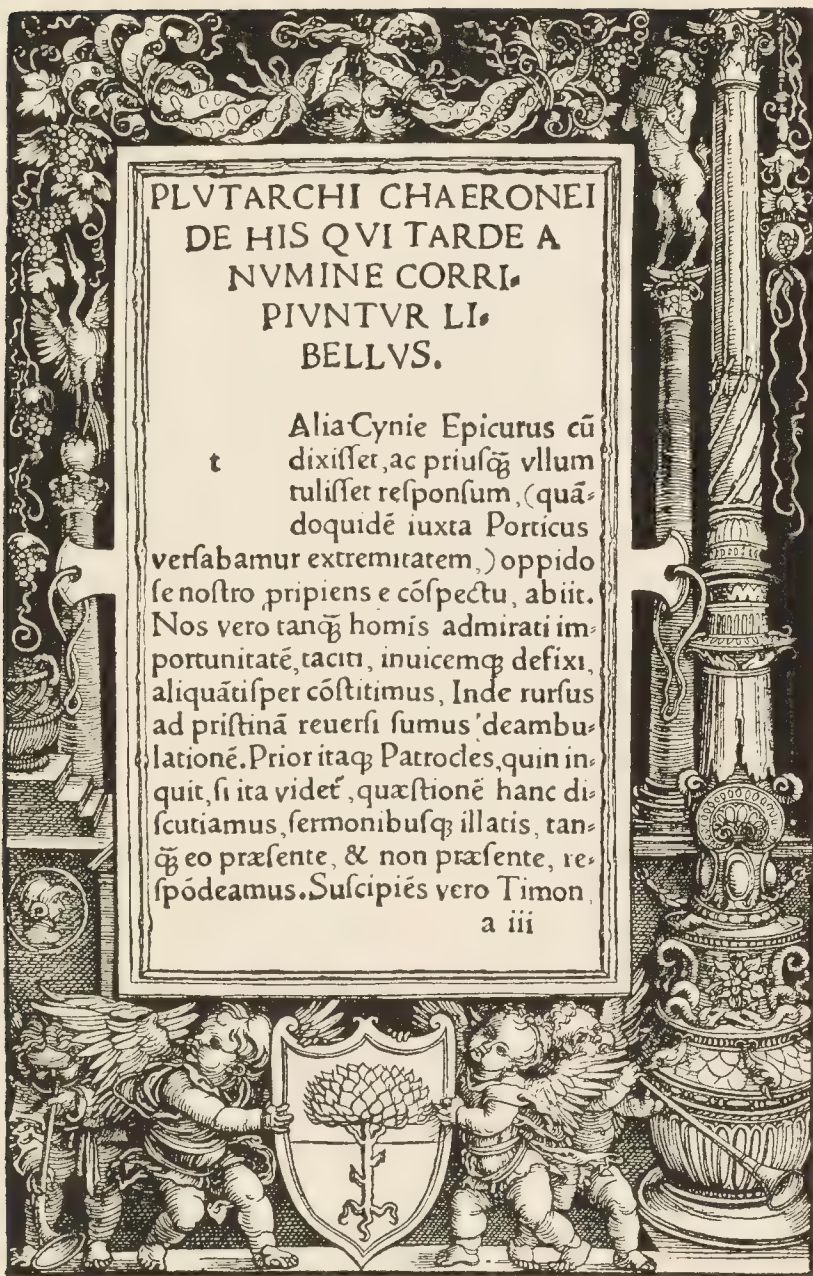 PLVTARCHI CHAERONEI
DE HIS QVI TARDE A
NVMINE CORRI⸗
PIVNTVR LI⸗
BELLVS.
t AliaCynie Epicurus cū
dixiſſet, ac priuſq̃ vllum
tuliſſet reſponſum, (quā⸗
doquidē iuxta Porticus
verſabamur extremitatem,) oppido
ſe noſtro ꝓripiens e cōſpectu, abiit.
Nos vero tanq̃ homīs admirati im⸗
portunitatē, taciti, inuicemqꝫ defixi,
aliquātiſper cōſtitimus, Inde rurſus
ad priſtinā reuerſi ſumus deambu⸗
lationē. Prior itaqꝫ Patrocles, quin in⸗
quit, ſi ita videt᷑, quæſtionē hanc di⸗
ſcutiamus, ſermonibuſqꝫ illatis, tan⸗
q̃ eo præſente, & non præſente, re⸗
ſpōdeamus. Suſcipiēs vero Timon,
a iii